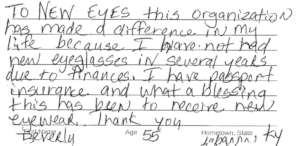 TO NEW EYES this organization
has made a difference in my
life because I have not had
new eyeglasses in several years
due to finances. I have passport
insurance and what a blessing
this has been to receive new
eyewear. Thank you
Beverly Age 55 Hometown, State Lebanon, Ky